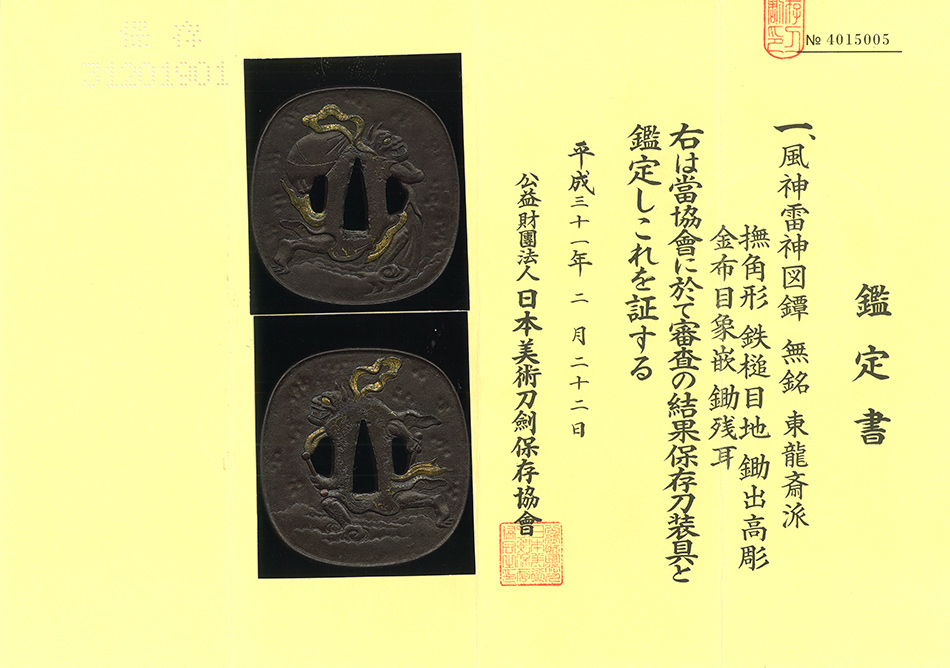 鑑定書
一、風神雷神図鐔 無銘 東龍斎派
撫角形 鉄槌目地 鋤出高彫
金布目象嵌 鋤残耳
右は當協會に於て審査の結果保存刀装具と
鑑定しこれを証する
平成三十一年 二月二十二日
公益財團法人 日本美術刀劍保存協會
№ 4015005
保存
31201901